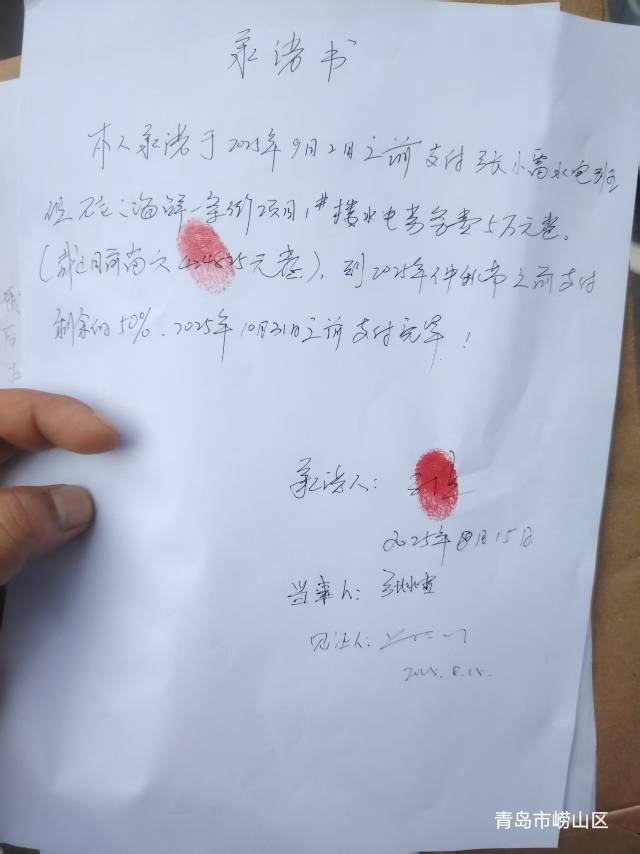 承诺书
本人承诺于2025年9月2日之前支付张小雷水电班
海鲜一条街项目1#楼水电劳务费5万元整。
(截止目前尚欠 元整),到2025年中秋节之前支付
剩余的50%、2025年10月31日之前支付完毕!
承诺人:
2025年8月15日
当事人:
见证人:
2025.8.15.
青岛市崂山区